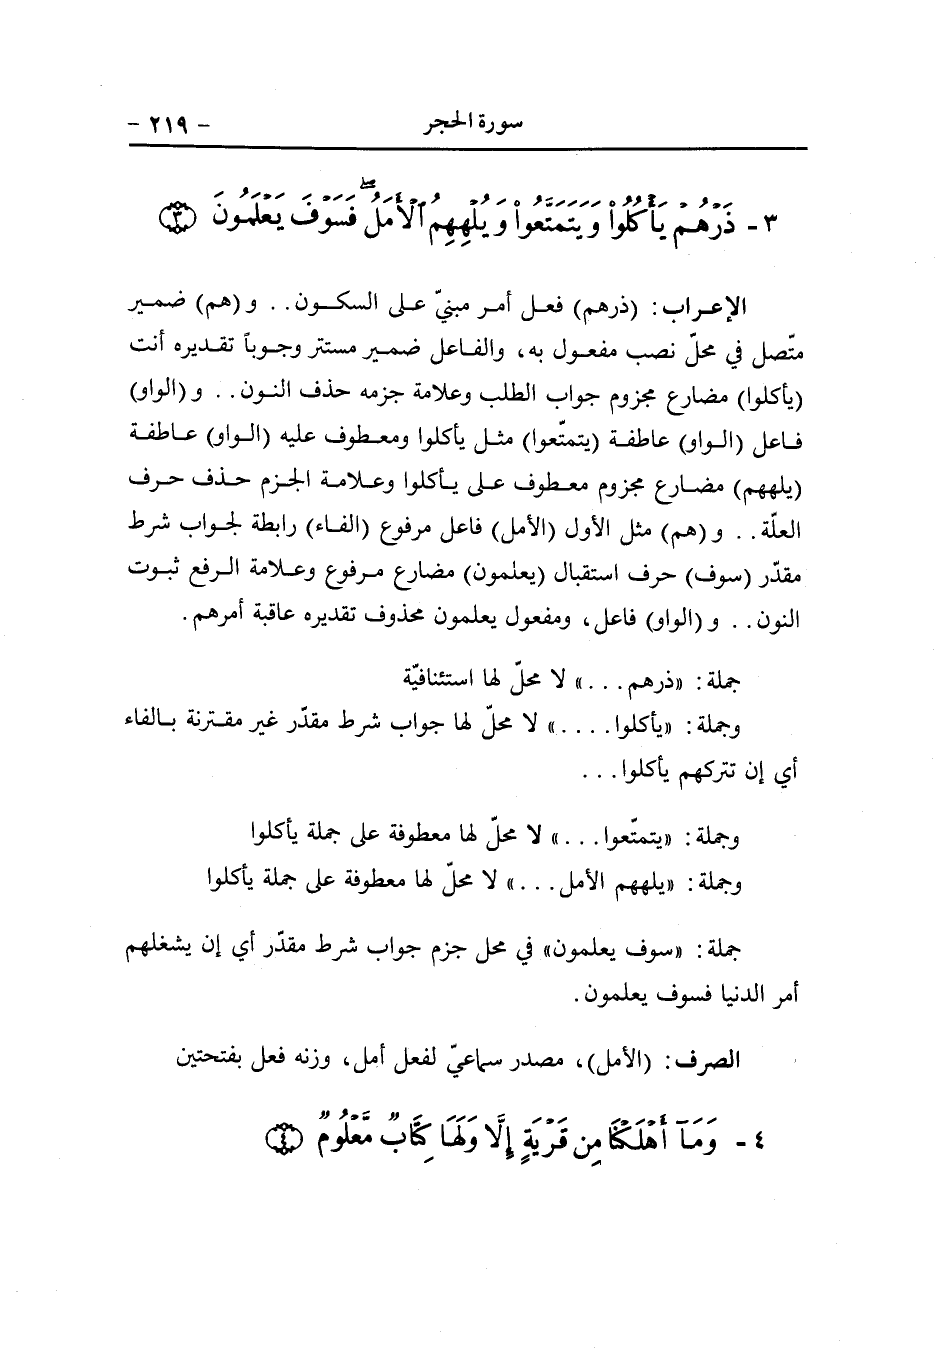 سورة الحجر - ٢١٩ -
٣ - ذَرْهُمْ يَأْكُلُوا۟ وَيَتَمَتَّعُوا۟ وَيُلْهِهِمُ ٱلْأَمَلُ ۖ فَسَوْفَ يَعْلَمُونَ ﴿٣﴾
الإعراب: (ذرهم) فعل أمر مبنيّ على السكون.. و(هم) ضمير
متّصل في محلّ نصب مفعول به، والفاعل ضمير مستتر وجوباً تقديره أنت
(يأكلوا) مضارع مجزوم جواب الطلب وعلامة جزمه حذف النون.. و(الواو)
فاعل (الواو) عاطفة (يتمتّعوا) مثل يأكلوا ومعطوف عليه (الواو) عاطفة
(يلههم) مضارع مجزوم معطوف على يأكلوا وعلامة الجزم حذف حرف
العلّة.. و(هم) مثل الأول (الأمل) فاعل مرفوع (الفاء) رابطة لجواب شرط
مقدّر (سوف) حرف استقبال (يعلمون) مضارع مرفوع وعلامة الرفع ثبوت
النون.. و(الواو) فاعل، ومفعول يعلمون محذوف تقديره عاقبة أمرهم.
جملة: «ذرهم...» لا محلّ لها استئنافيّة
وجملة: «يأكلوا....» لا محلّ لها جواب شرط مقدّر غير مقترنة بالفاء
أي إن تتركهم يأكلوا...
وجملة: «يتمتّعوا...» لا محلّ لها معطوفة على جملة يأكلوا
وجملة: «يلههم الأمل...» لا محلّ لها معطوفة على جملة يأكلوا
جملة: «سوف يعلمون» في محل جزم جواب شرط مقدّر أي إن يشغلهم
أمر الدنيا فسوف يعلمون.
الصرف: (الأمل)، مصدر سماعيّ لفعل أمل، وزنه فعل بفتحتين
٤ - وَمَآ أَهْلَكْنَا مِن قَرْيَةٍ إِلَّا وَلَهَا كِتَابٌ مَّعْلُومٌ ﴿٤﴾